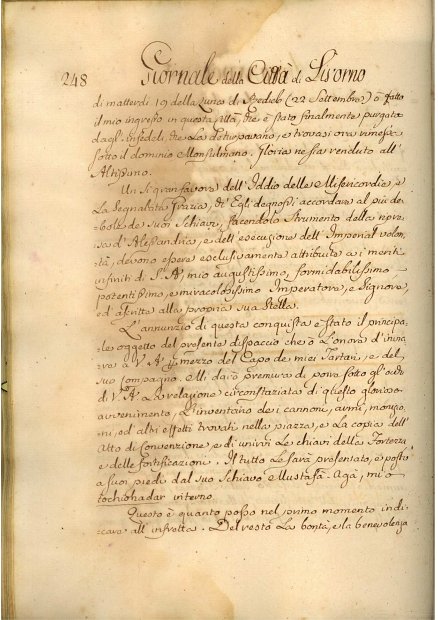 248
Giornale della Città di Livorno
di matterdì 19 della Luna di Redieb (22 Settembre) ò fatto
il mio ingresso in questa città, che è stato finalmente purgata
dagl' Infedeli, che La deturpavano, e trovasi ora rimessa
sotto il dominio Monsulmano. Gloria ne sia renduto all'
Altissimo.
Un sì gran favore dell' Iddio delle Misericordie, e
La Segnalata Grazia, ch' Egli degnossi accordare al più de-
bole de' suoi Schiavi, facendolo Strumento della repre-
sa d'Alessandria, e dell' esecuzione dell' Imperial volon-
tà, devono essere esclusivamente attribuite a i meriti
infiniti di S. A, mio augustissimo, formidabilissimo
potentissimo, e miracolosissimo Imperatore, e Signore,
ed ascritta alla propria sua Stella.
L'annunzio di questa conquista è stato il principa-
le oggetto del presente dispaccio che ò L'onore d'invia-
re a V. A. per mezzo del Capo de' miei Tartari, e del
suo compagno. e Mi darò premura di porre sotto gl' occhi
di V. A. La relazione circostanziata di questo glorioso
avvenimento, L'inventario dei cannoni, armi, monizio-
ni, ed altri effetti trovati nella piazza, e La copia dell'
Atto di Convenzione, e di unirvi Le chiavi della Fortezza
e delle fortificazioni. Il tutto Le sarà presentato, e posto
a suoi piedi dal suo Schiavo e Mustafà-Agà, mio
tochiohadar interno
Questo è quanto posso nel primo momento indi-
care all' infretta. Del resto La bontà, e la benevolenza